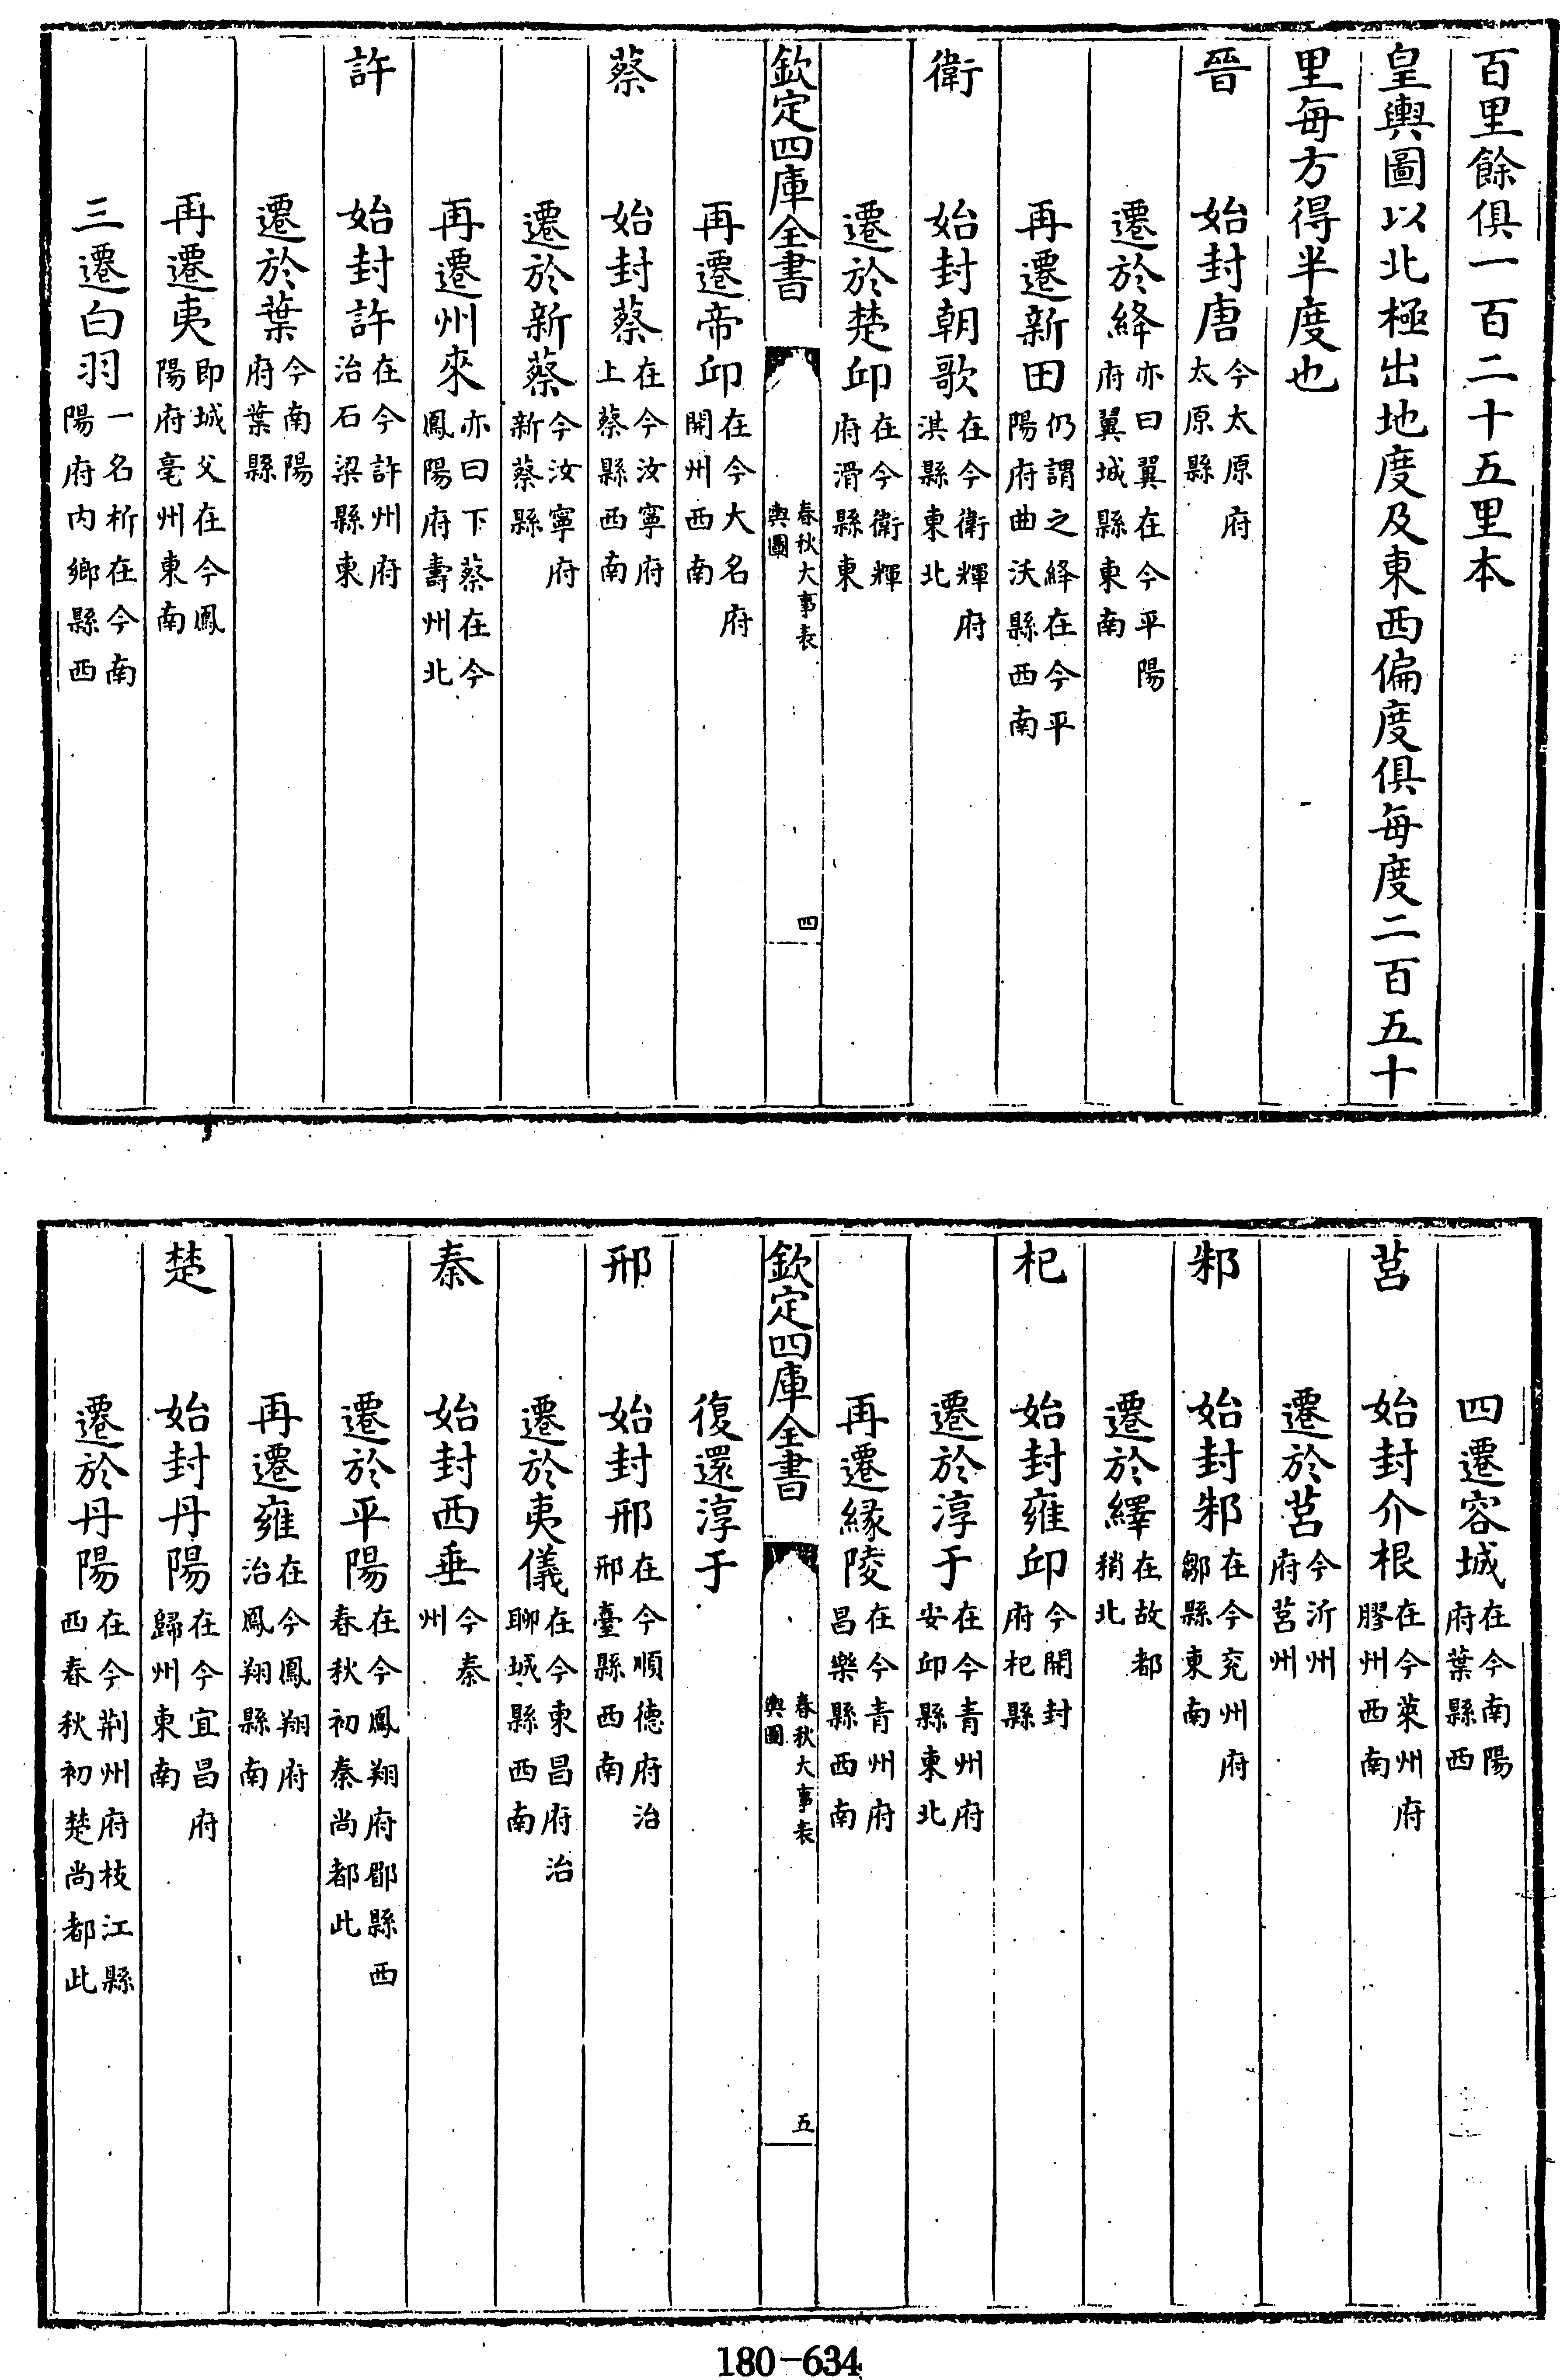 百里餘俱一百二十五里本
皇輿圖以北極出地度及東西偏度俱每度二百五十
里每方得半度也
晉 始封唐今太原府太原縣
遷於絳亦曰翼在今平陽府翼城縣東南
再遷新田仍謂之絳在今平陽府曲沃縣西南
衛 始封朝歌在今衛輝府淇縣東北
遷於楚邱在今衛輝府滑縣東
欽定四庫全書 春秋大事表輿圖 四
再遷帝邱在今大名府開州西南
蔡 始封蔡在今汝寧府上蔡縣西南
遷於新蔡今汝寧府新蔡縣
再遷州來亦曰下蔡在今鳳陽府壽州北
許 始封許在今許州府治石梁縣東
遷於葉今南陽府葉縣
再遷夷即城父在今鳳陽府亳州東南
三遷白羽一名析在今南陽府内鄉縣西
四遷容城在今南陽府葉縣西
莒 始封介根在今萊州府膠州西南
遷於莒今沂州府莒州
邾 始封邾在今兖州府鄒縣東南
遷於繹在故都稍北
杞 始封雍邱今開封府杞縣
遷於淳于在今青州府安邱縣東北
再遷緣陵在今青州府昌樂縣西南
欽定四庫全書 春秋大事表輿圖 五
復還淳于
邢 始封邢在今順德府治邢臺縣西南
遷於夷儀在今東昌府治聊城縣西南
秦 始封西垂今秦州
遷於平陽在今鳳翔府郿縣西春秋初秦尚都此
再遷雍在今鳳翔府治鳳翔縣南
楚 始封丹陽在今宜昌府歸州東南
遷於丹陽在今荆州府枝江縣西春秋初楚尚都此
180-634